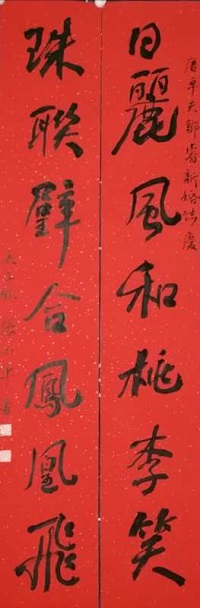 日麗風和桃李笑
珠聯璧合鳳凰飛